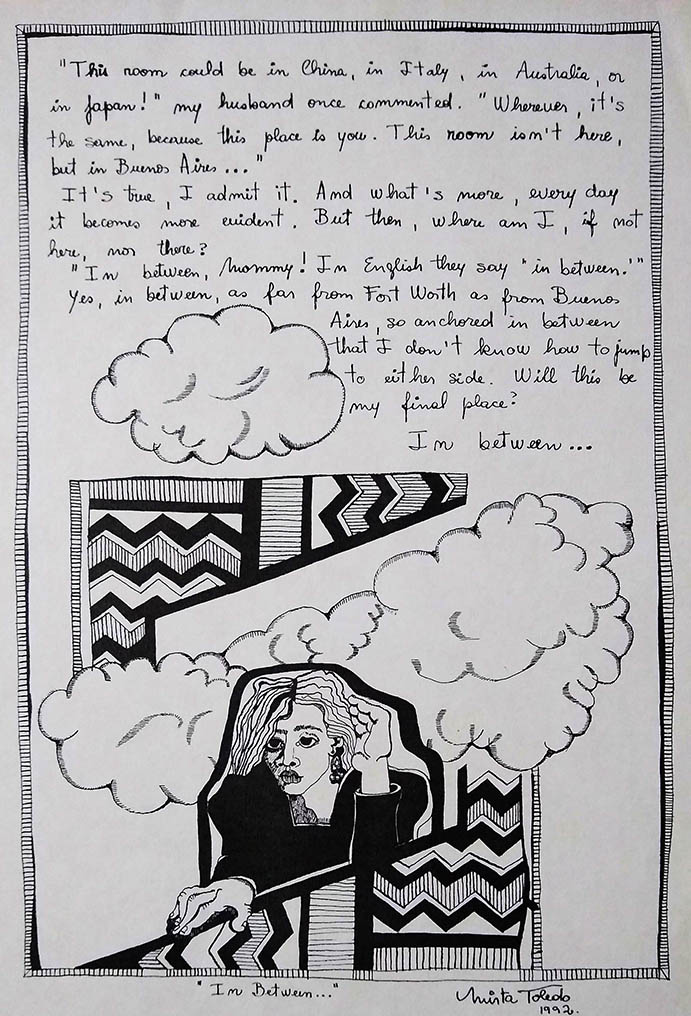 "This room could be in China, in Italy, in Australia, or
in Japan!" my husband once commented. "Wherever, it's
the same, because this place is you. This room isn't here,
but in Buenos Aires..."
It's true, I admit it. And what's more, every day
it becomes more evident. But then, where am I, if not
here, nor there?
"In between, Mommy! In English they say 'in between.'"
Yes, in between, as far from Fort Worth as from Buenos
Aires, so anchored in between
that I don't know how to jump
to either side. Will this be
my final place?
In between...
"In Between..."
Toledo
1992.